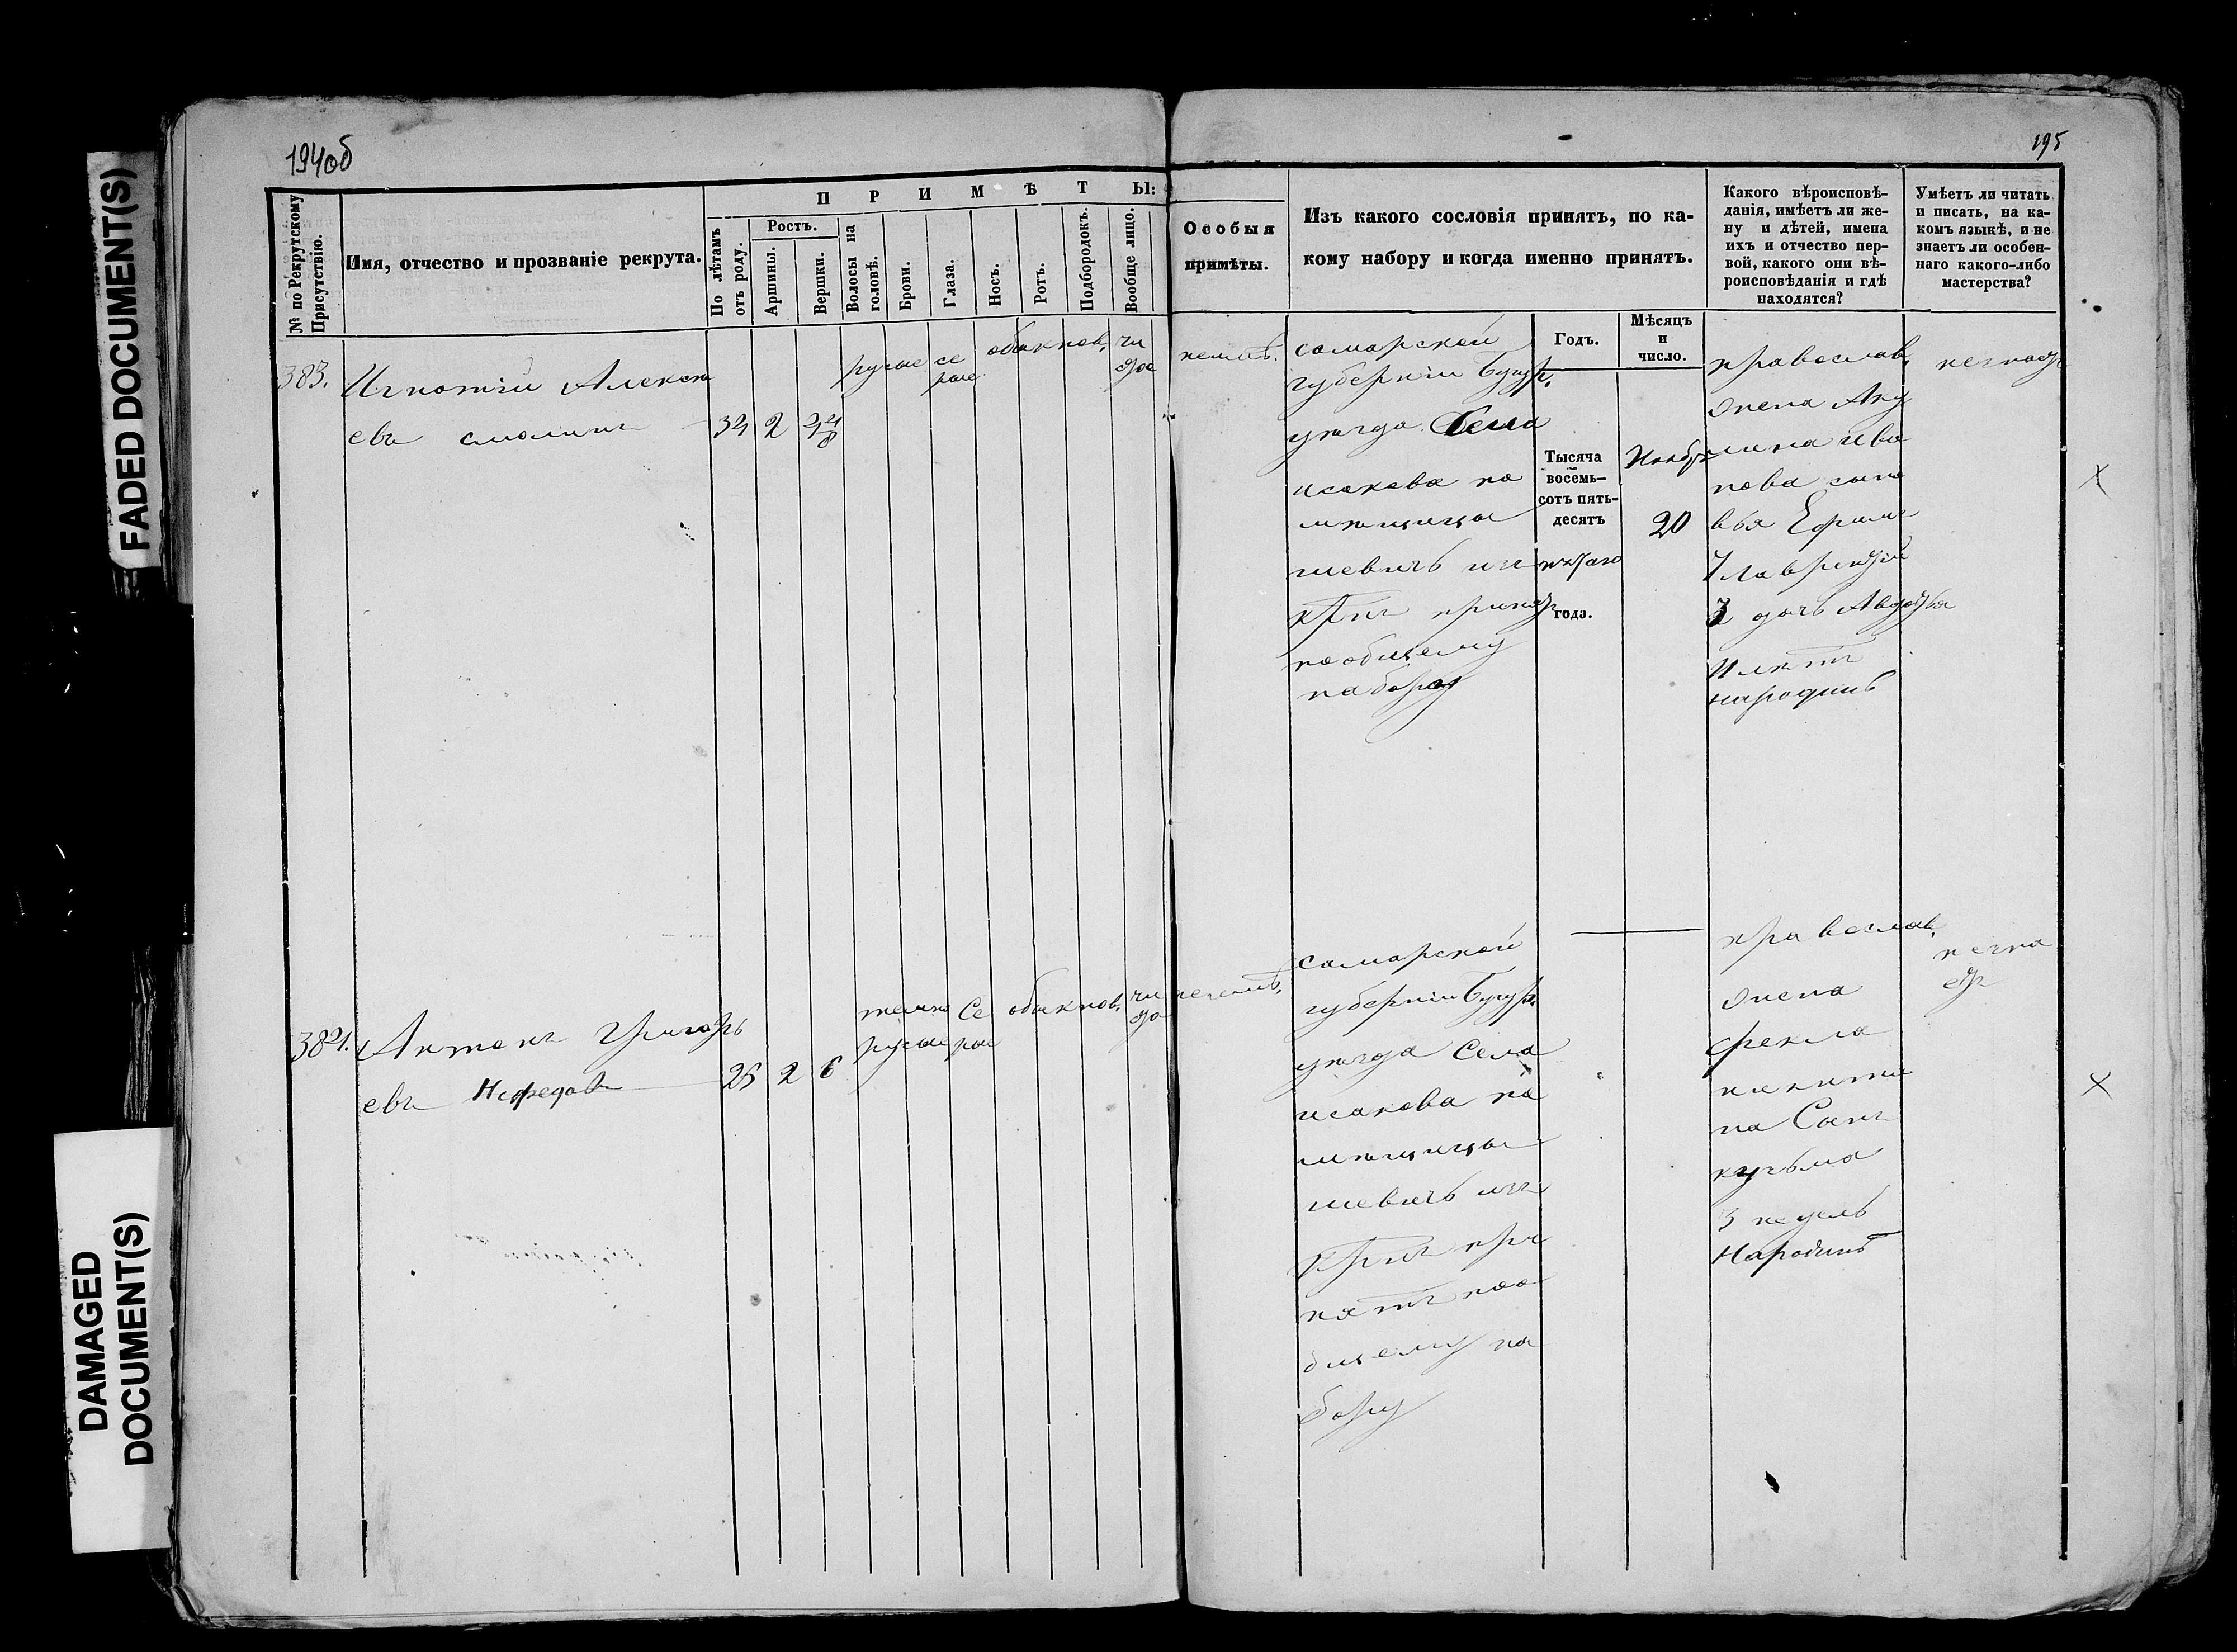 194об
195
FADED DOCUMENT(S)
DAMAGED
DOCUMENT(S)
№ по Рекрутскому
Присутствію.
Имя, отчество и прозваніе рекрута.
ПРИМѢТЫ:
По лѣтамъ
отъ роду.
Ростъ.
Аршины.
Вершки.
Волосы на
головѣ.
Брови.
Глаза.
Носъ.
Ротъ.
Подбородокъ.
Вообще лицо.
Особыя
примѣты.
Изъ какого сословія принятъ, по ка-
кому набору и когда именно принятъ.
Годъ.
Мѣсяцъ
и
число.
Какого вѣроисповѣ-
данія, имѣетъ ли же-
ну и дѣтей, имена
ихъ и отчество пер-
вой, какого они вѣ-
роисповѣданія и гдѣ
находятся?
Умѣетъ ли читать
и писать, на ка-
комъ языкѣ, и не
знаетъ ли особен-
наго какого-либо
мастерства?
383.
Игнатій Алексѣ
евъ Смолинъ
34 2 4 4/8
русые
се
рые
обыкнов.
чи
стое
самарской
губерніи Бугур.
уѣзда Села
исакова по
мѣщицы
кр҃нъ принятъ
пообщему
набору
Тысяча
восемь-
сотъ пять-
десятъ
пятаго
года.
Ноябр
20
православ.
жена Аку
лина ива
нова сыно
вья Ефимъ
7 лаврентій
3 дочь Авдотья
лѣтъ
народинѣ
незнаетъ
384.
Антонъ Григорь
евъ Нефедовъ
26 2 6
темно
русые
Се
рые
обыкнов.
чи
сто
самарской
губерніи Бугур.
уѣзда Села
исакова по
мѣщицы
кр҃нъ при
нятъ поо
бщему на
бору
православ.
жена
фекла
никити
на Сынъ
кузьма
3 недель
Народинѣ
незна
етъ